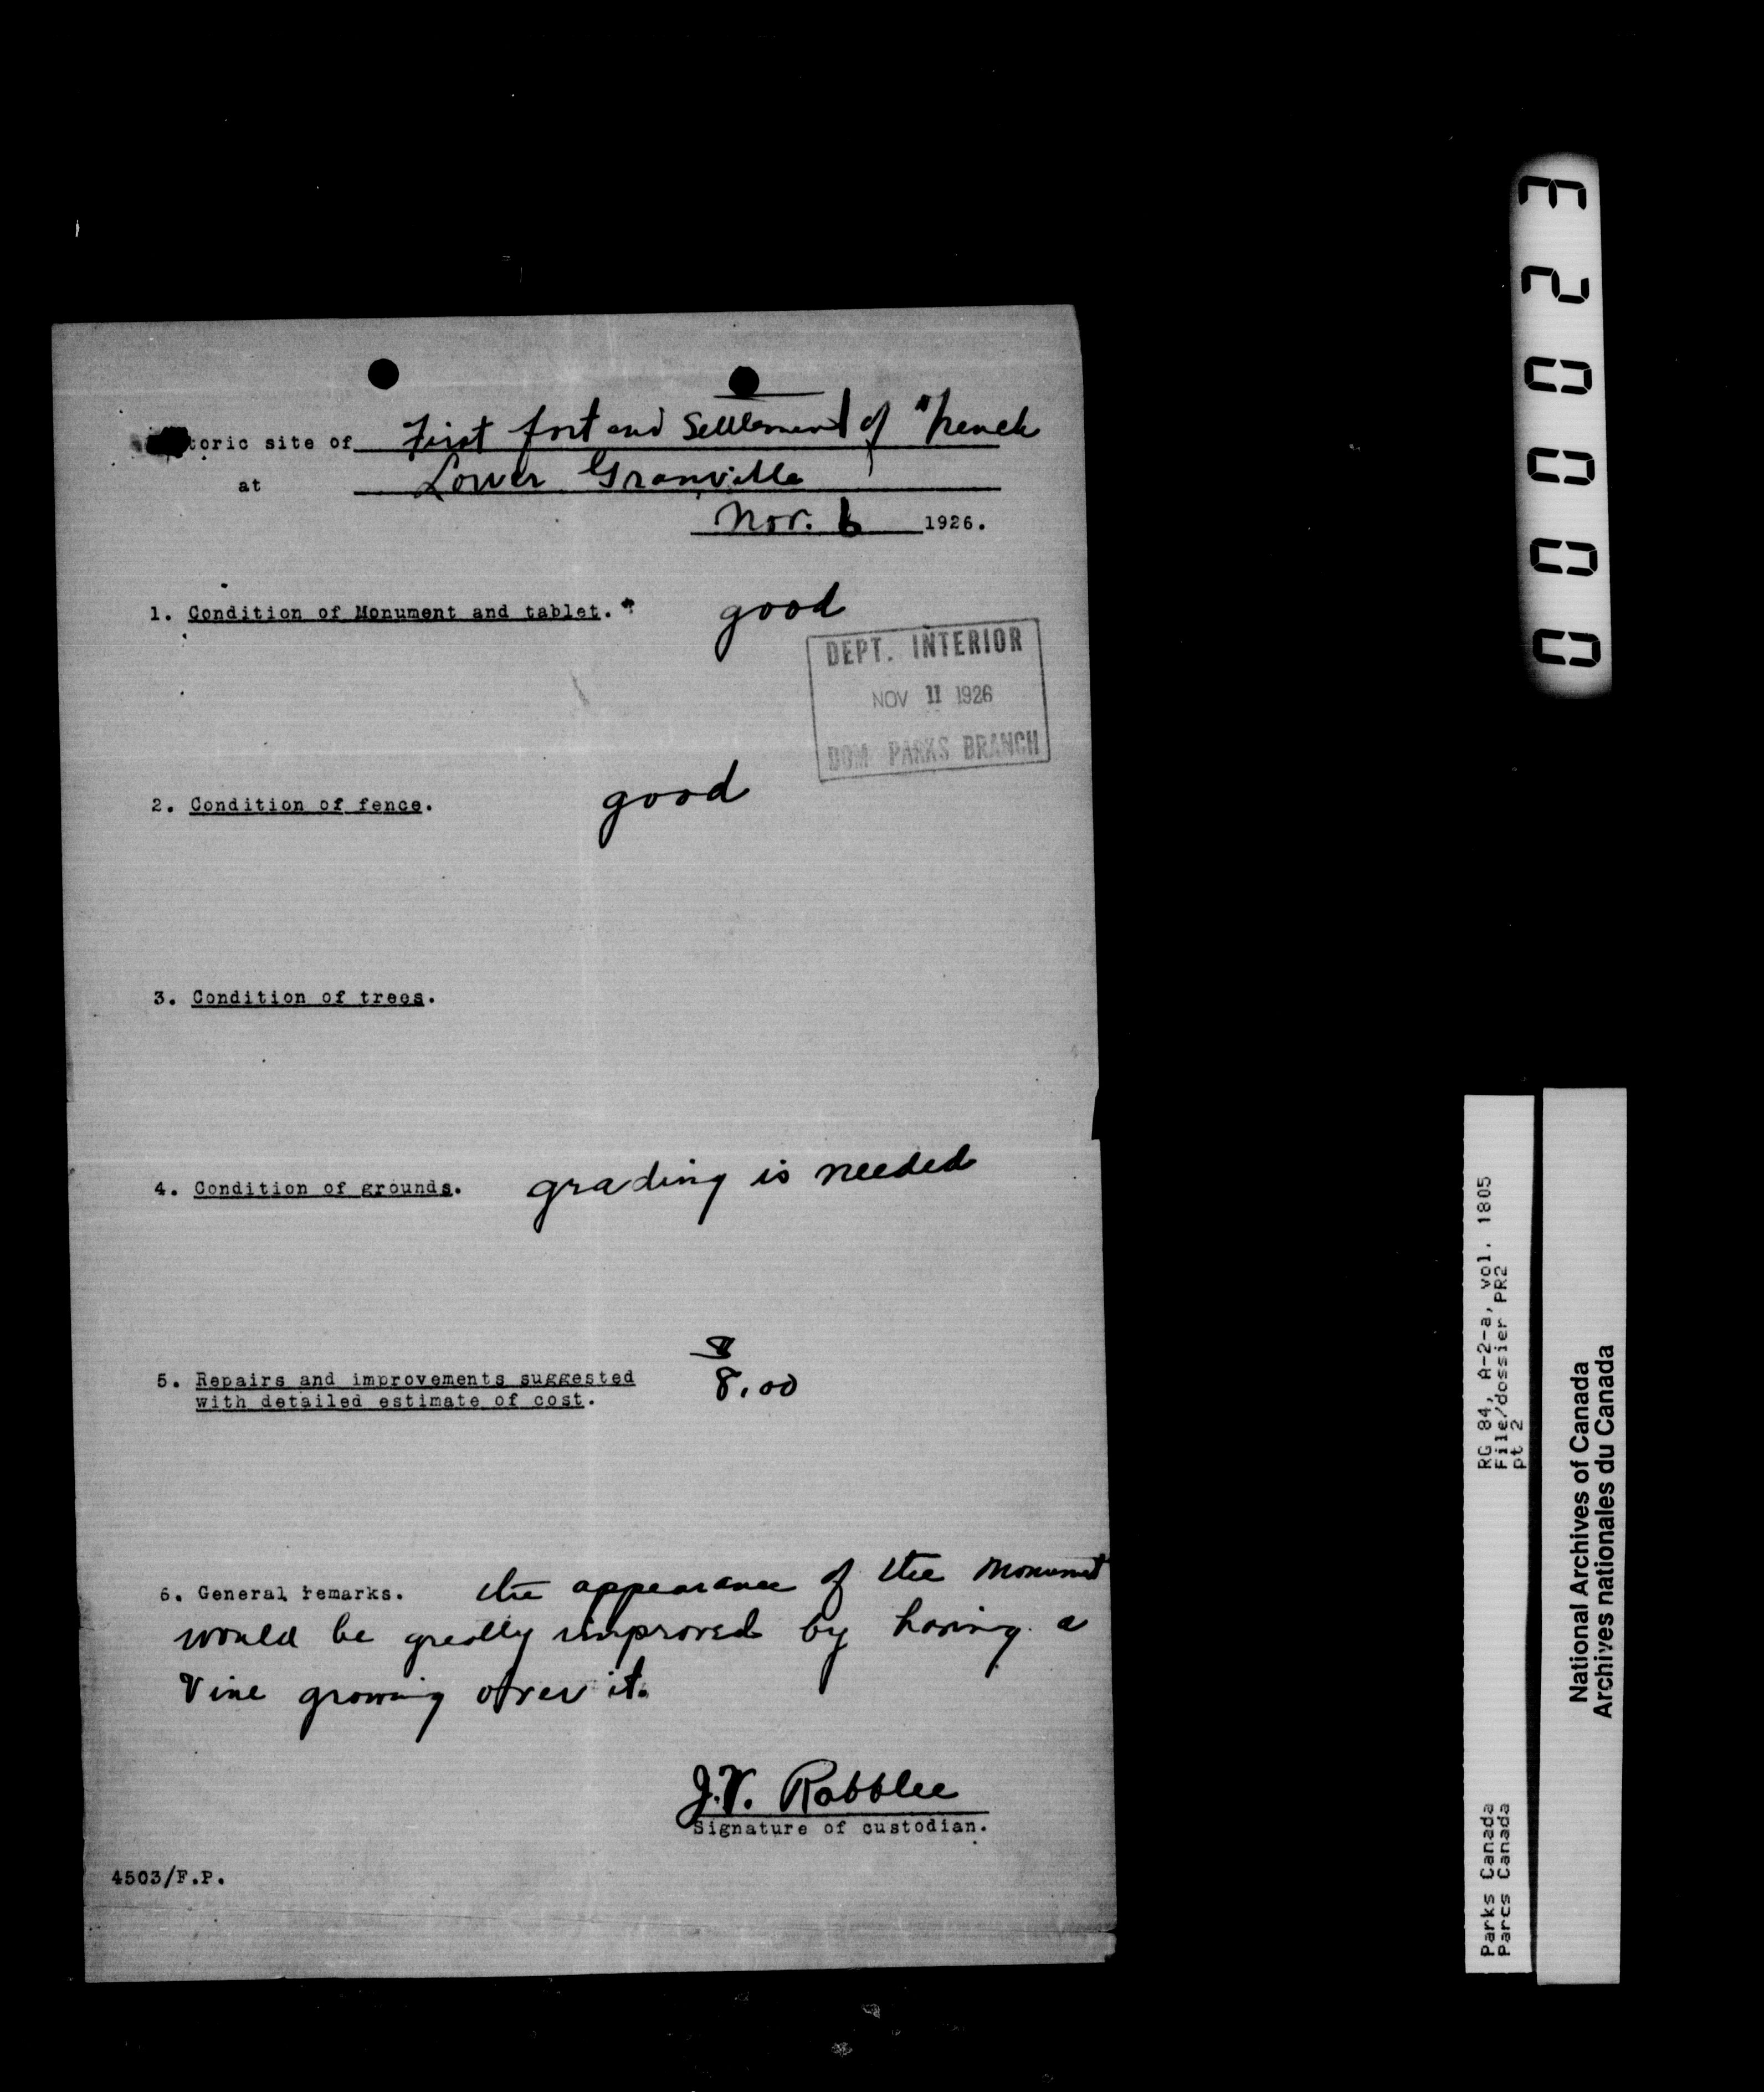 toric site of First fort and Settlement of French
at Lower Granville
Nov. 6 1926.
1. Condition of Monument and tablet. good
DEPT. INTERIOR
NOV 11 1926
DOM PARKS BRANCH
2. Condition of fence. good
3. Condition of trees.
4. Condition of grounds. grading is needed
8
5. Repairs and improvements suggested 8.00
with detailed estimate of cost.
6. General remarks. the appearance of the Monument
would be greatly improved by having a
Vine growing over it.
J.V. Rabblee
Signature of custodian.
4503/F.P.
000023
RG 84, A-2-a, vol. 1805
File/dossier PR2
pt 2
Parks Canada
Parcs Canada
National Archives of Canada
Archives nationales du Canada